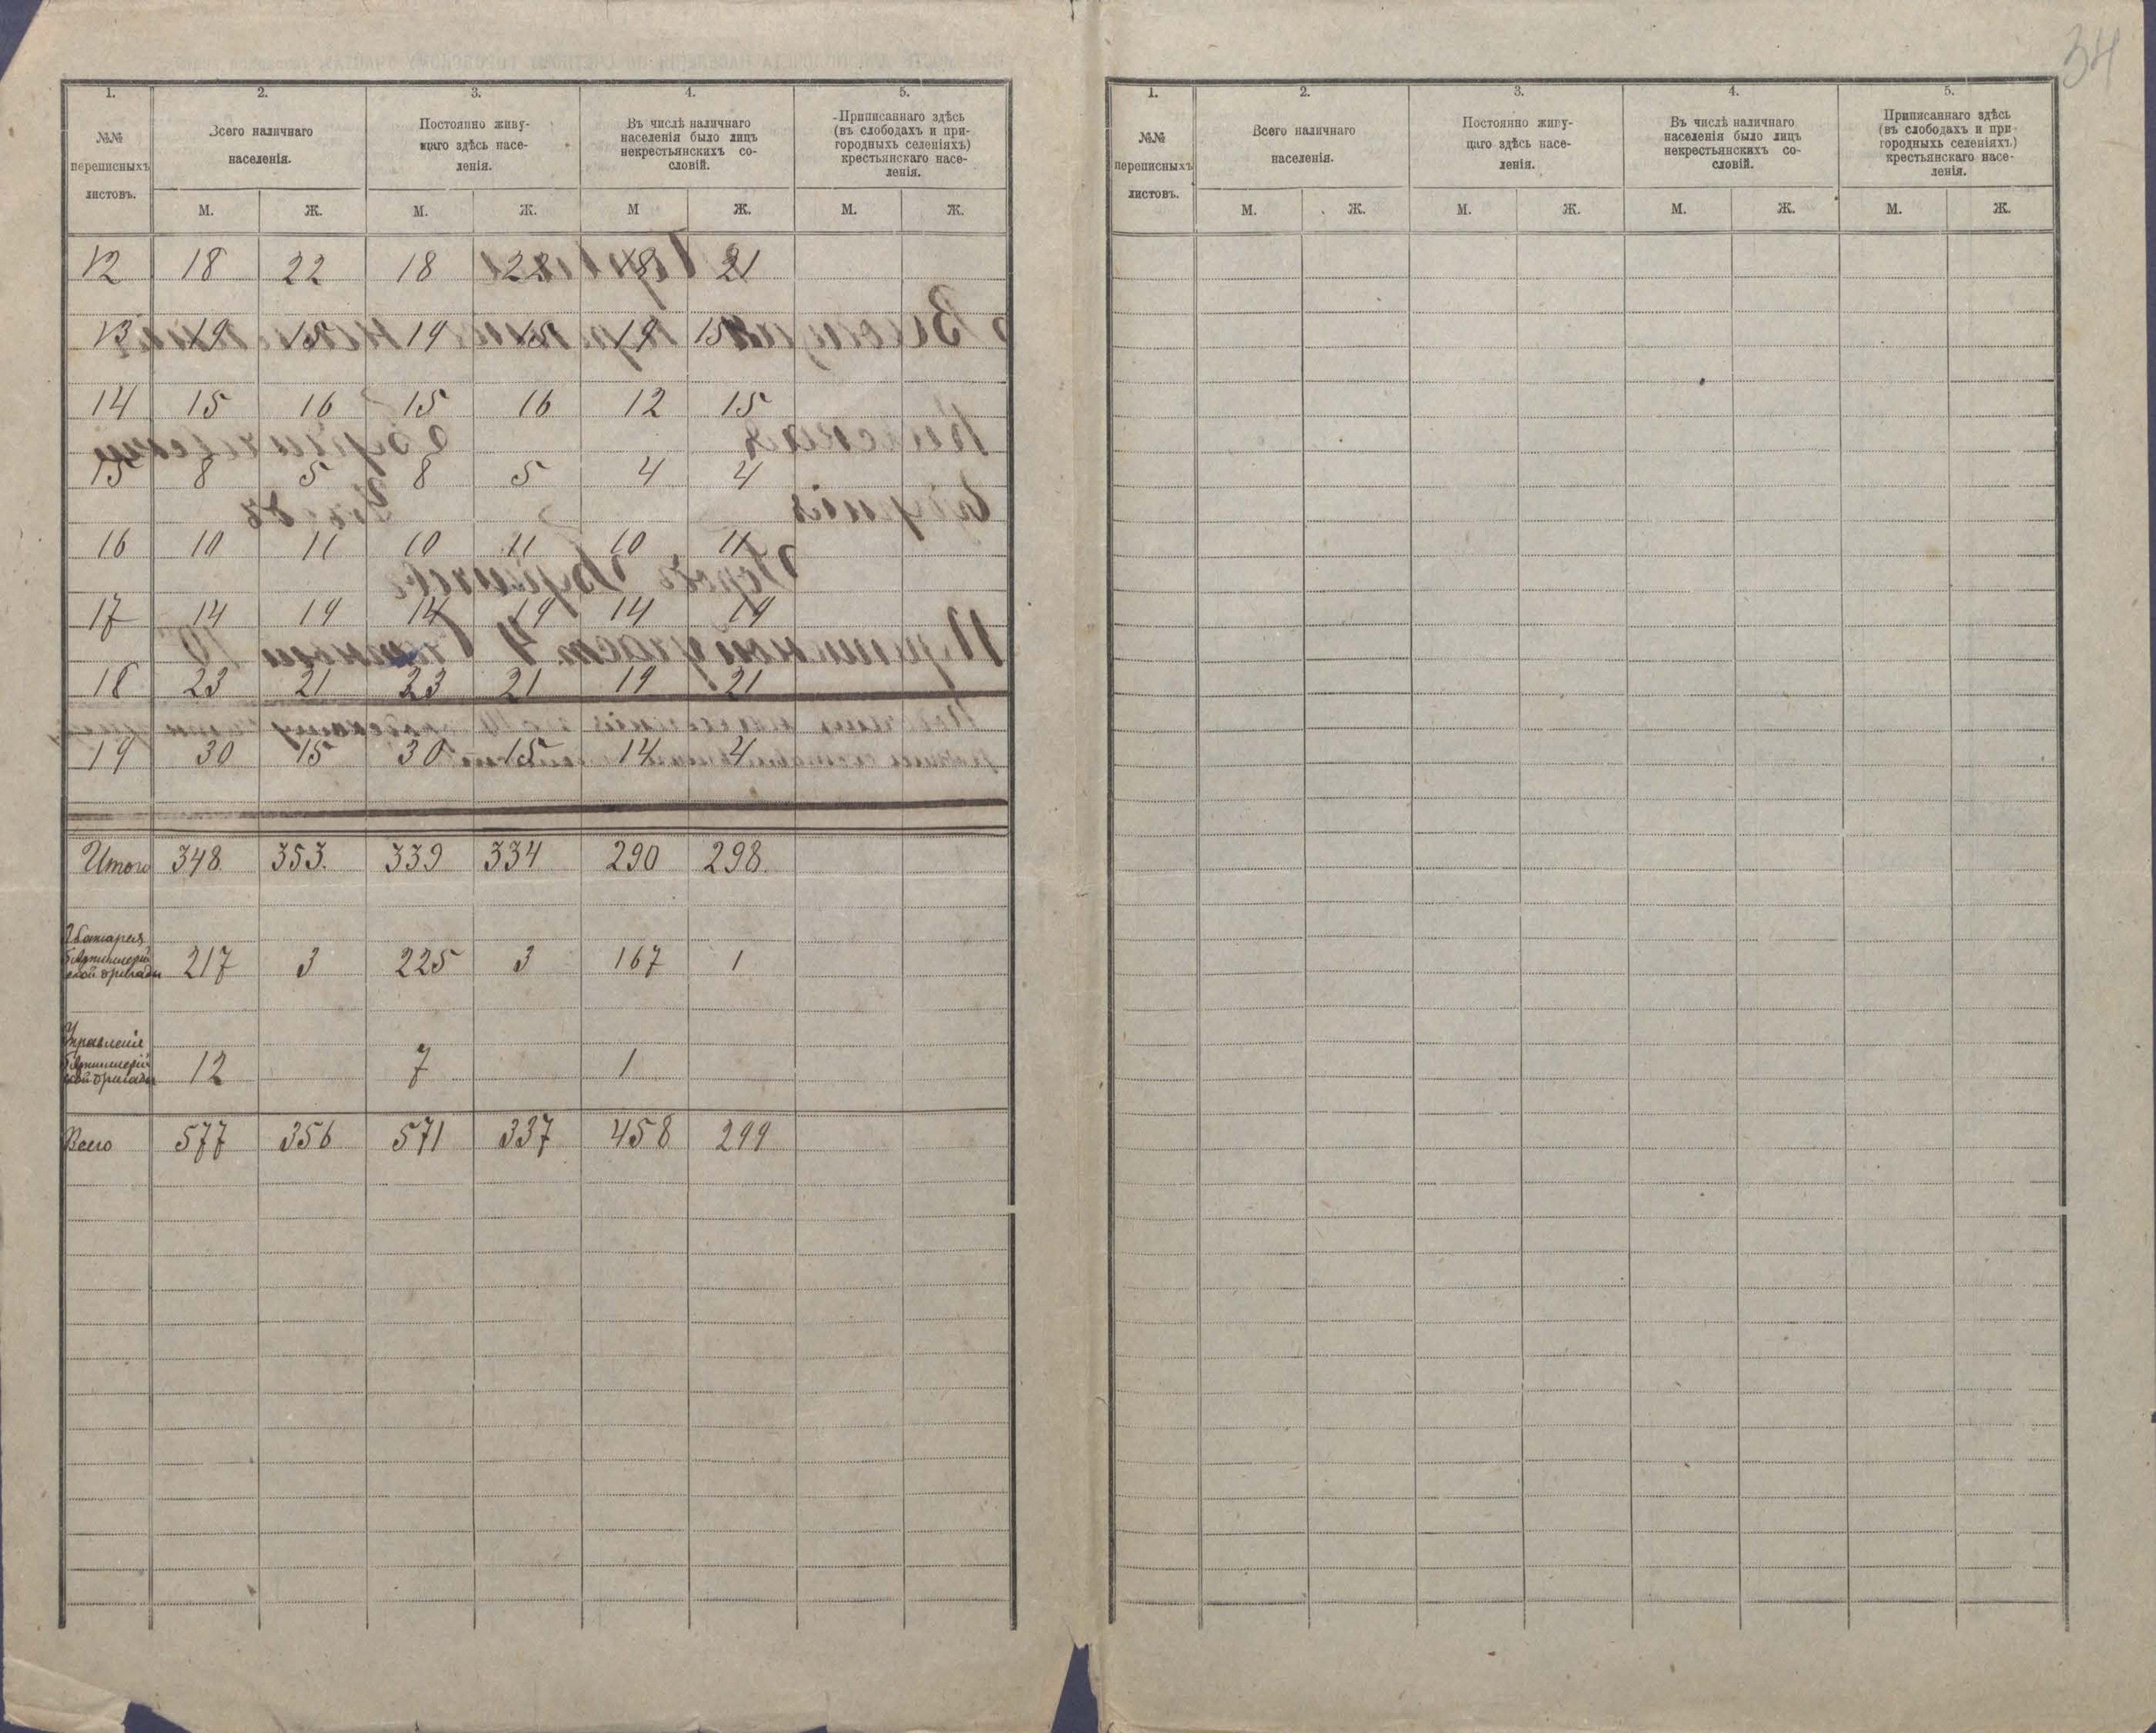 34
1. 2. 3. 4. 5.
№№ переписныхъ листовъ.
Всего наличнаго населенія.
Постоянно живущаго здѣсь населенія.
Въ числѣ наличнаго населенія было лицъ некрестьянскихъ сословій.
Приписаннаго здѣсь (въ слободахъ и пригородныхъ селеніяхъ) крестьянскаго населенія.
М. Ж. М. Ж. М Ж. М. Ж.
12 18 22 18 22 18 21
13 19 15 19 15 19 15
14 15 16 15 16 12 15
15 8 5 8 5 4 4
16 10 11 10 11 10 11
17 14 19 14 19 14 19
18 23 21 23 21 19 21
19 30 15 30 15 14 4
Итого 348 353. 339 334 290 298.
батарея
Артиллерій
ской бригады 217 3 225 3 167 1
Управленіе
Артиллерій
ской бригады 12 7 1
Всего 577 356 571 337 458 299
1. 2. 3. 4. 5.
№№ переписныхъ листовъ.
Всего наличнаго населенія.
Постоянно живущаго здѣсь населенія.
Въ числѣ наличнаго населенія было лицъ некрестьянскихъ сословій.
Приписаннаго здѣсь (въ слободахъ и пригородныхъ селеніяхъ) крестьянскаго населенія.
М. Ж. М. Ж. М. Ж. М. Ж.